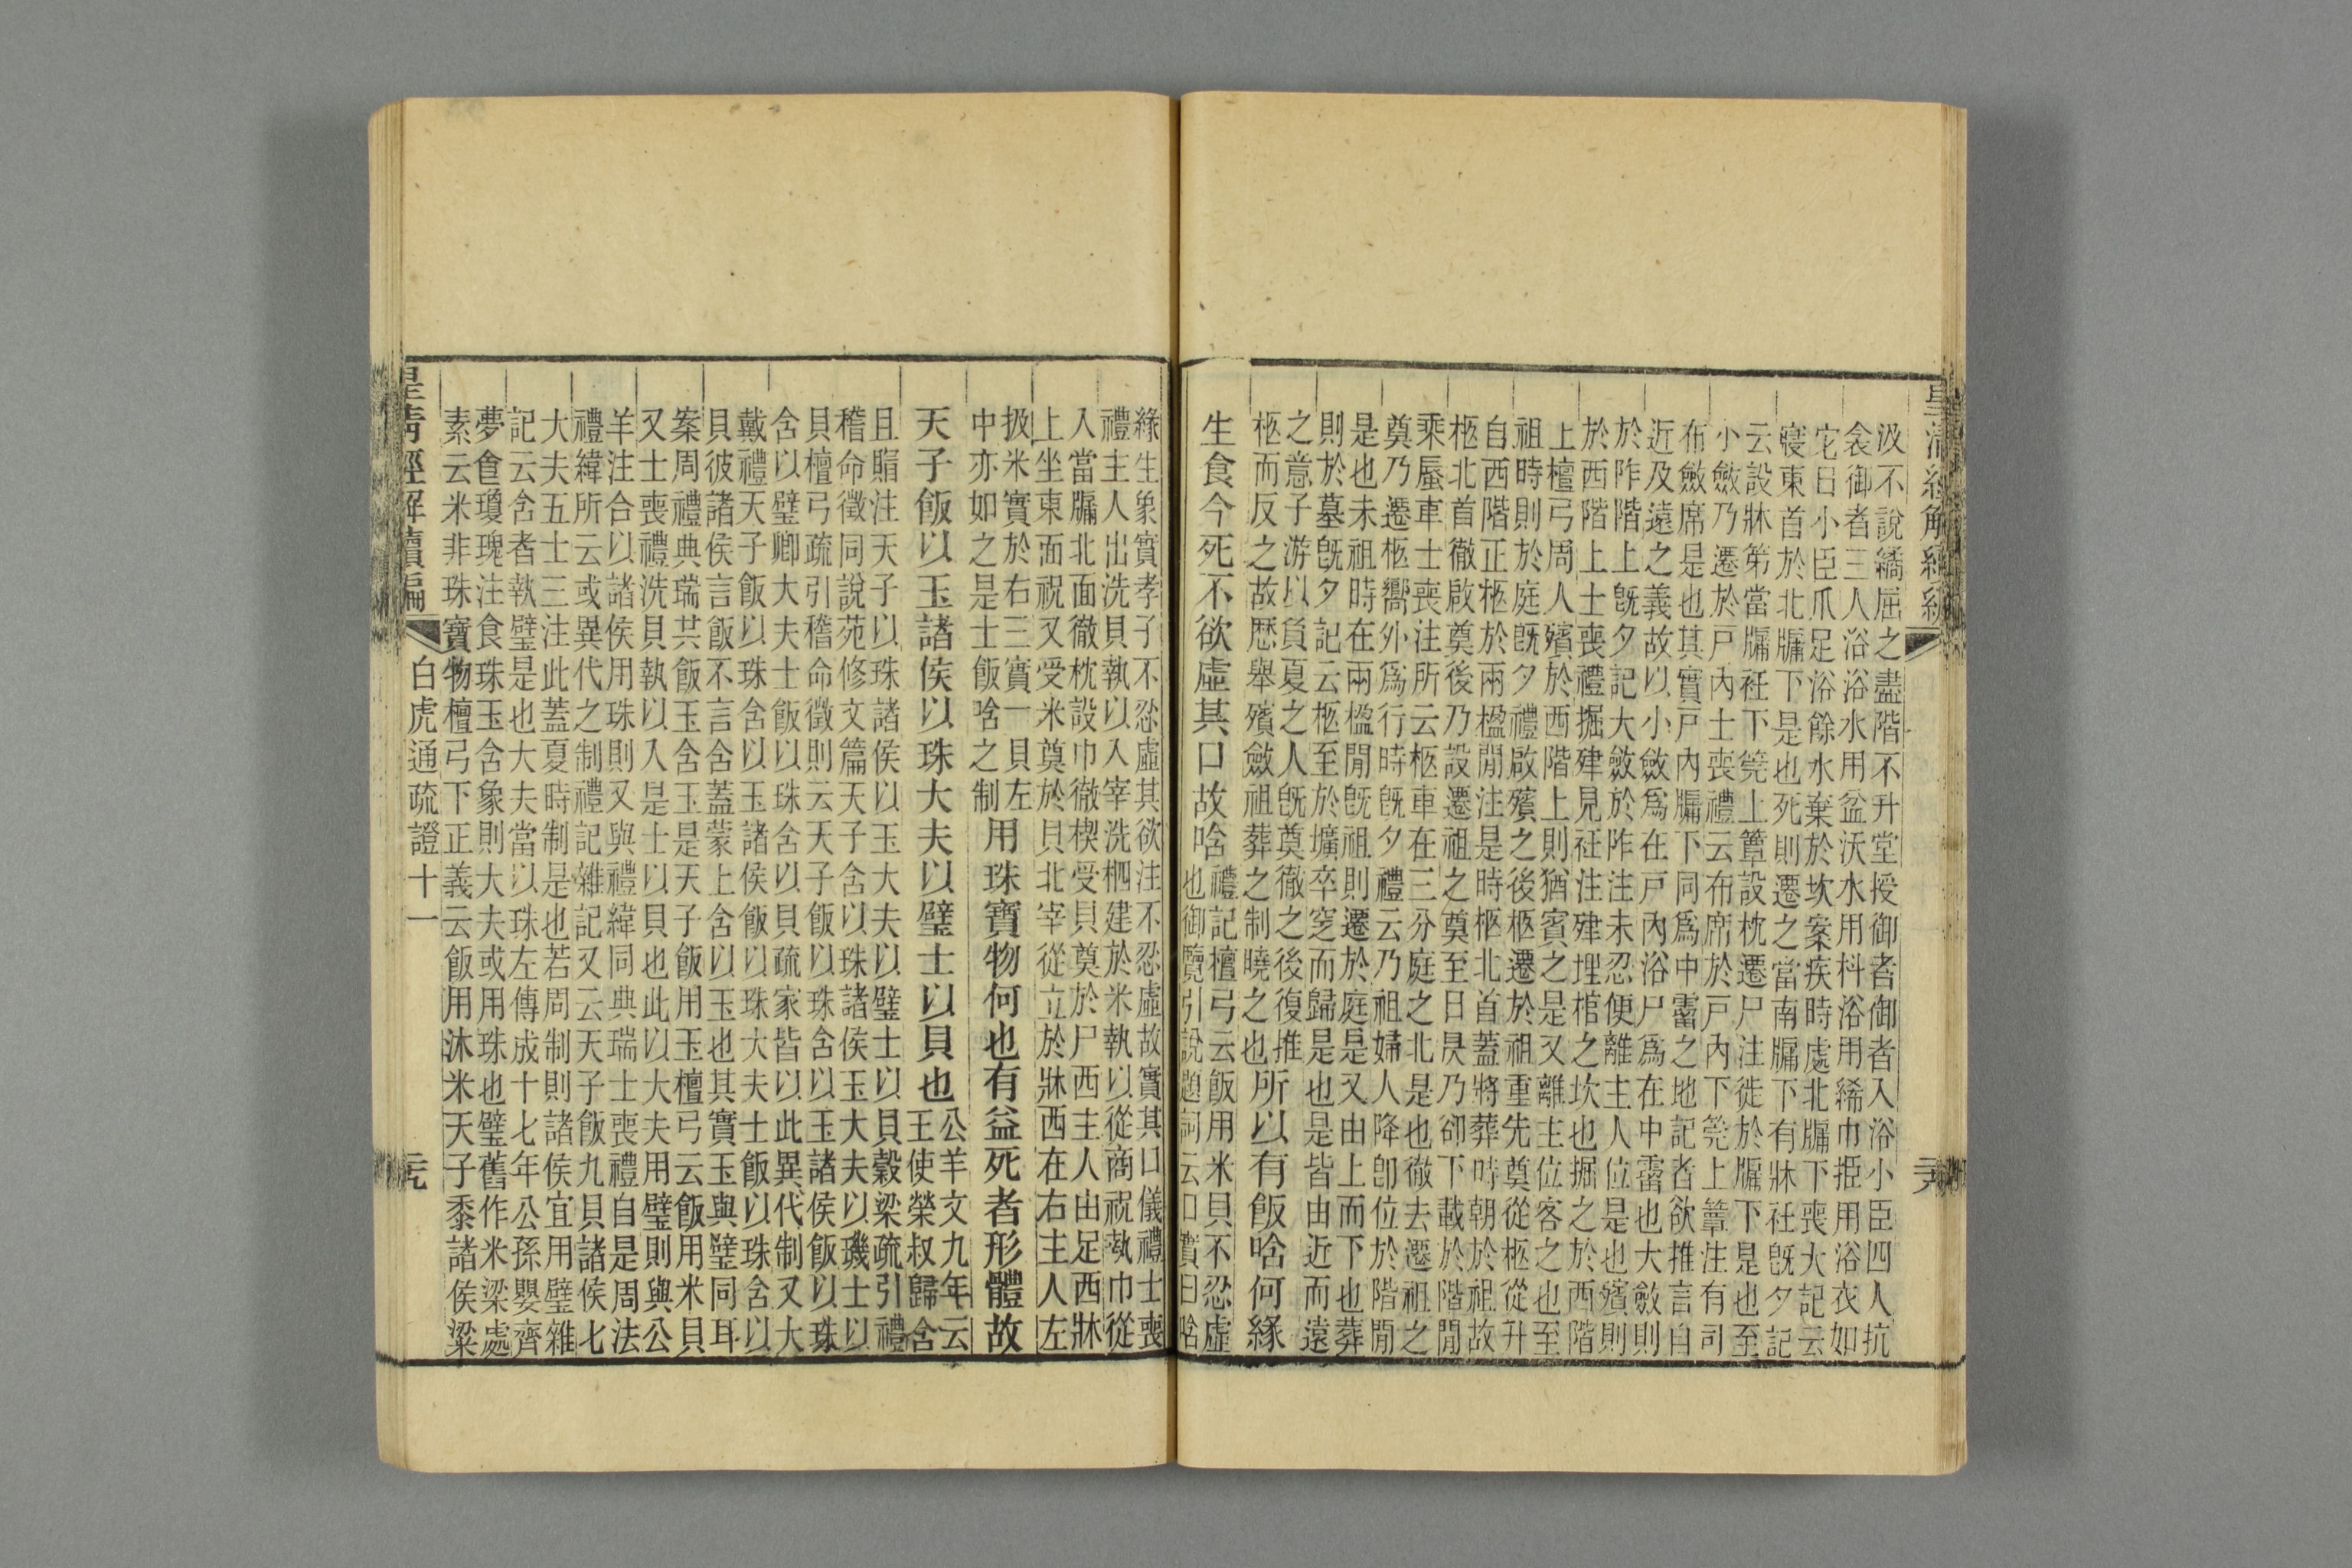 皇清經解續編　卄八
汲不說繘屈之盡階不升堂授御者御者入浴小臣四人抗
衾御者三人浴浴水用盆沃水用枓浴用絺巾挋用浴衣如
它日小臣爪足浴餘水棄於坎案疾時處北牖下喪大記云
寢東首於北牖下是也死則遷之當南牖下有牀衽旣夕記
云設牀笫當牖衽下莞上簟設枕遷尸注徙於牖下是也至
小斂乃遷於戸內士喪禮云布席於戸內下莞上簟注有司
布斂席是也其實戸內牖下同爲中霤之地記者欲推言自
近及遠之義故以小斂爲在戸內浴尸爲在中霤也大斂則
於阼階上旣夕記大斂於阼注未忍便離主人位是也殯則
於西階上士喪禮掘肂見衽注肂埋棺之坎也掘之於西階
上檀弓周人殯於西階上則猶賓之是又離主位客之也至
祖時則於庭旣夕禮啟殯之後柩遷於祖重先奠從柩從升
自西階正柩於兩楹閒注是時柩北首蓋將葬時朝於祖故
柩北首徹啟奠後乃設遷祖之奠至日昃乃卻下載於階閒
乘蜃車士喪注所云柩車在三分庭之北是也徹去遷祖之
奠乃遷柩嚮外爲行時旣夕禮云乃祖婦人降卽位於階閒
是也未祖時在兩楹閒旣祖則遷於庭是又由上而下也葬
則於墓旣夕記云柩至於壙卒窆而歸是也是皆由近而遠
之意子游以負夏之人旣奠徹之後復推
柩而反之故歷舉殯斂祖葬之制曉之也
所以有飯唅何緣
生食今死不欲虛其口故唅
禮記檀弓云飯用米貝不忍虛
也御覽引說題詞云口實曰唅
緣生象實孝子不忍虛其欲注不忍虛故實其口儀禮士喪
禮主人出洗貝執以入宰洗柶建於米執以從商祝執巾從
入當牖北面徹枕設巾徹楔受貝奠於尸西主人由足西牀
上坐東面祝又受米奠於貝北宰從立於牀西在右主人左
扱米實於右三實一貝左
中亦如之是士飯唅之制
用珠寶物何也有益死者形體故
天子飯以玉諸侯以珠大夫以璧士以貝也
公羊文九年云
王使榮叔歸含
且賵注天子以珠諸侯以玉大夫以璧士以貝榖梁疏引禮
稽命徵同說苑修文篇天子含以珠諸侯玉大夫以璣士以
貝檀弓疏引稽命徵則云天子飯以珠含以玉諸侯飯以珠
含以璧卿大夫士飯以珠含以貝疏家皆以此異代制又大
戴禮天子飯以珠含以玉諸侯飯以珠大夫士飯以珠含以
貝彼諸侯言飯不言含蓋蒙上含以玉也其實玉與璧同耳
案周禮典瑞共飯玉含玉是天子飯用玉檀弓云飯用米貝
又士喪禮洗貝執以入是士以貝也此以大夫用璧則與公
羊注合以諸侯用珠則又與禮緯同典瑞士喪禮自是周法
禮緯所云或異代之制禮記雜記又云天子飯九貝諸侯七
大夫五士三注此蓋夏時制是也若周制則諸侯宜用璧雜
記云含者執璧是也大夫當以珠左傳成十七年公孫嬰齊
夢食瓊瑰注食珠玉含象則大夫或用珠也璧舊作米梁處
素云米非珠寶物檀弓下正義云飯用沐米天子黍諸侯粱
皇清經解續編　白虎通疏證十一　卄九